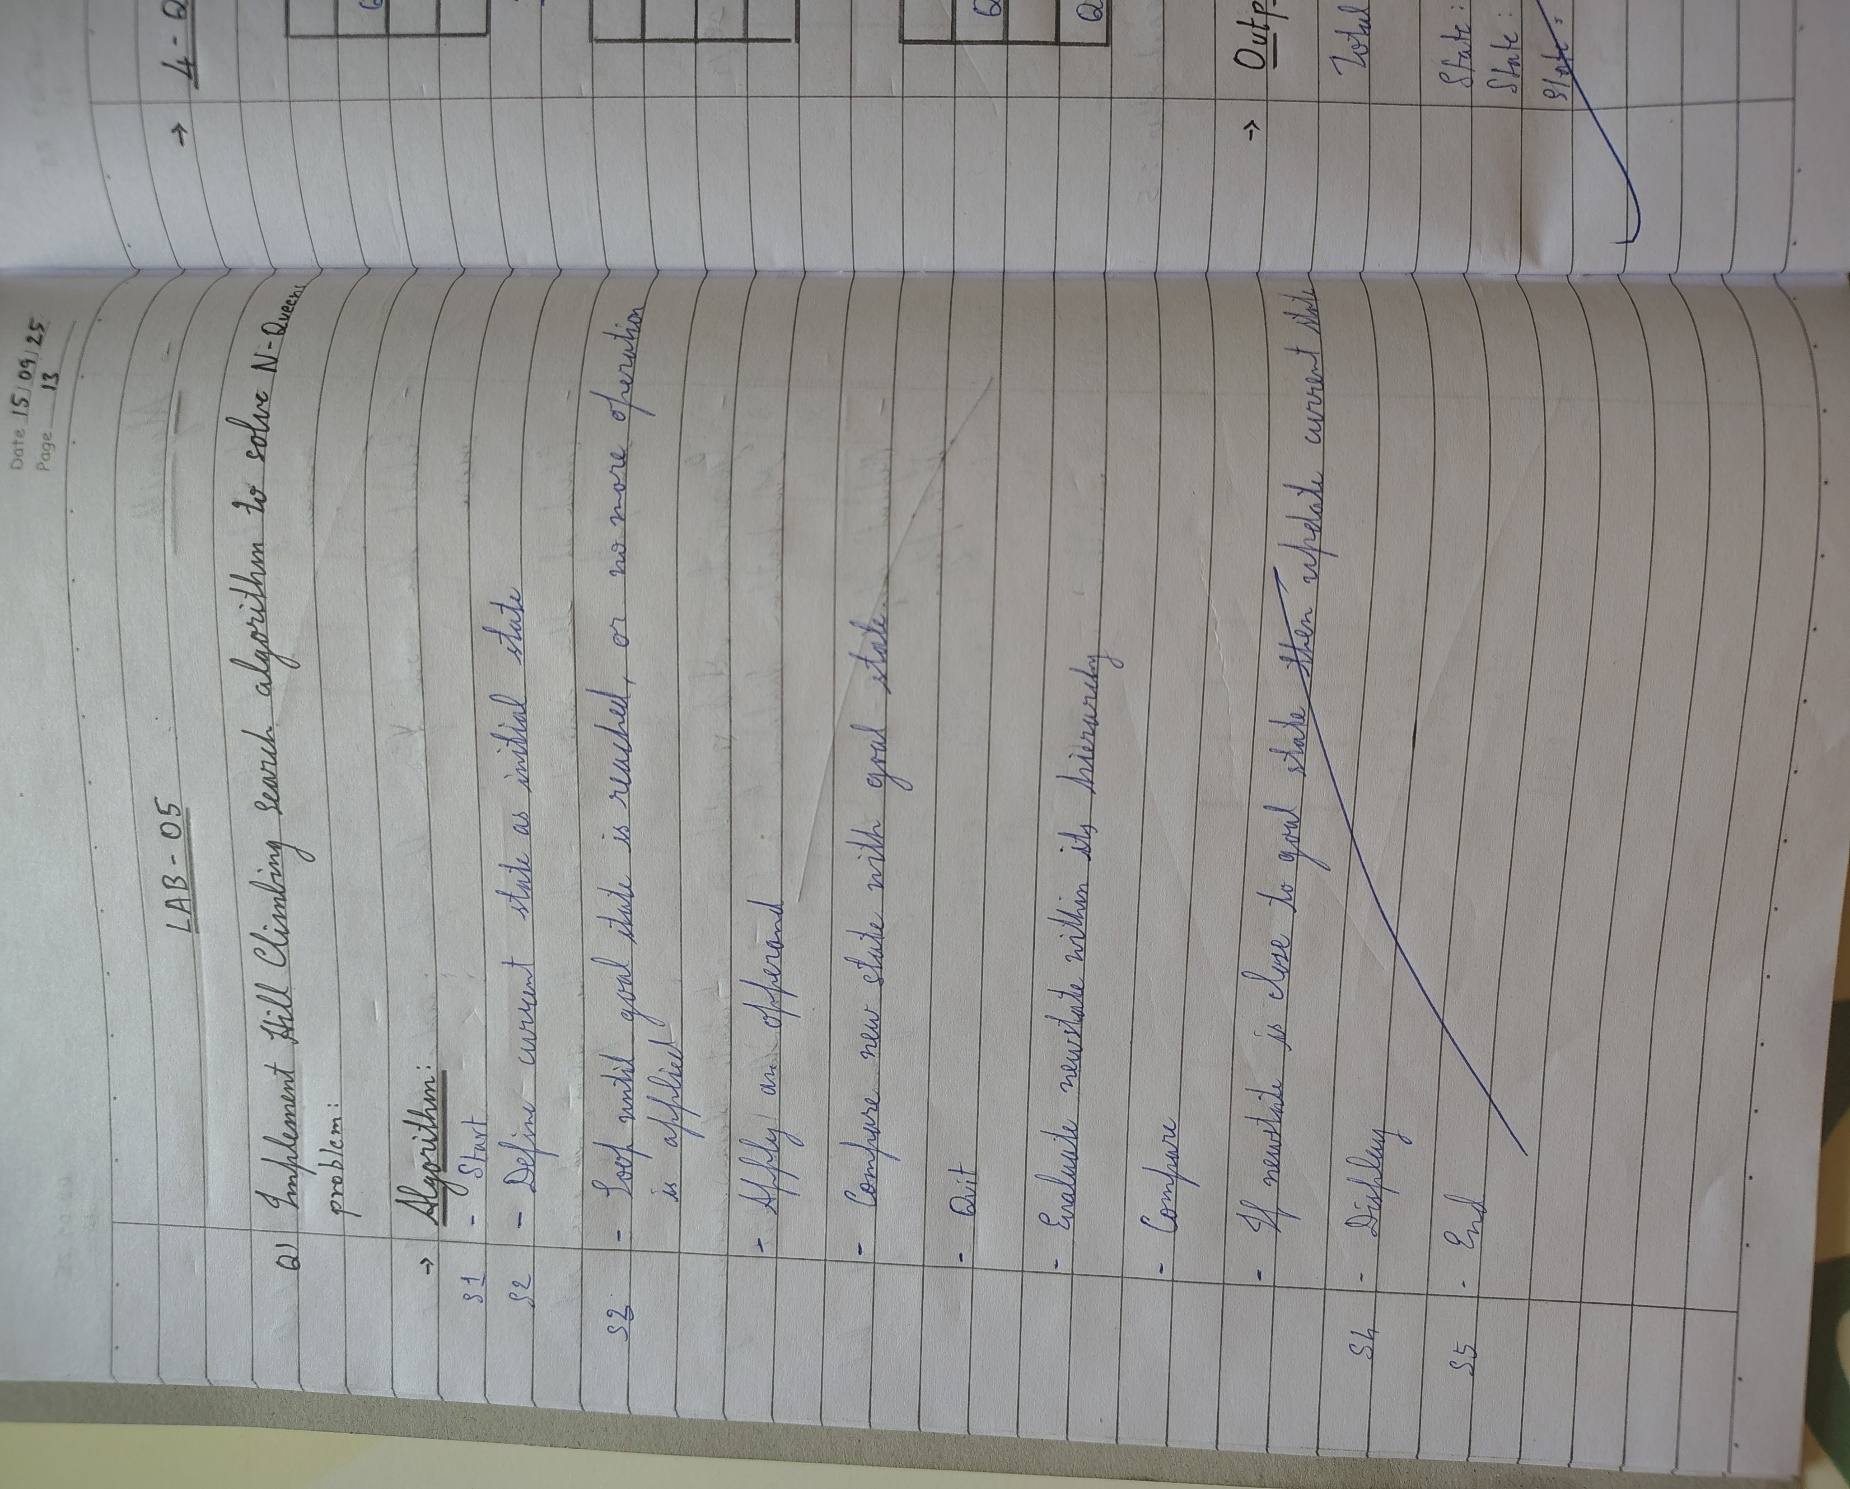 Date 15/09/25
Page 13
LAB-05
Q) Implement Hill Climbing search algorithm to solve N-Queens
problem:
→ Algorithm:
S1 - Start
S2 - Define current state as initial state
S3 - Loop until goal state is reached, or no more operation
is applied
- Apply an opperand
- Compare new state with goal state
- Quit
- Evaluate newstate within its hierarchy
- Compare
- If newstate is close to goal state then update current state
S4 - Display
S5 - End
→ 4-Q
Q
Q
Q
→ Outp
Total
State:
State:
State: